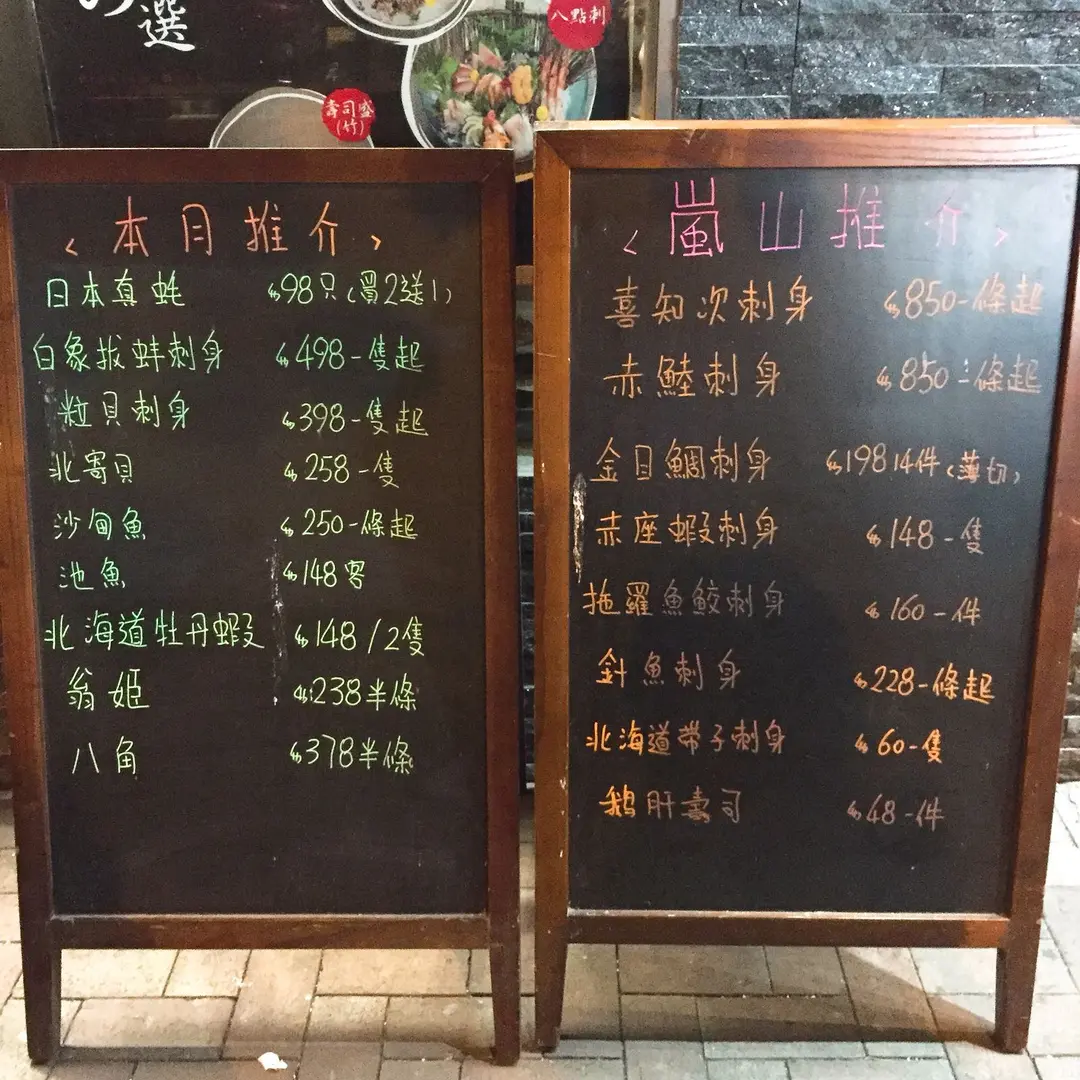 の選
八點刺
壽司盛
(竹)
<本月推介>
日本真蚝 $98只(買2送1)
白象拔蚌刺身 $498-隻起
粒貝刺身 $398-隻起
北寄貝 $258-隻
沙甸魚 $250-條起
池魚 $148客
北海道牡丹蝦 $148/2隻
翁姬 $238半條
八角 $378半條
<嵐山推介>
喜知次刺身 $850-條起
赤鯥刺身 $850-條起
金目鯛刺身 $198 14件(薄切)
赤座蝦刺身 $148-隻
拖羅魚鮫刺身 $160-件
針魚刺身 $228-條起
北海道帶子刺身 $60-隻
鵝肝壽司 $48-件